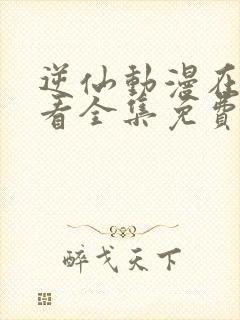 逆仙動漫在
看全集免費
醉戈天下